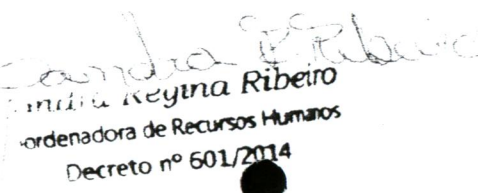 Sandra R. Ribeiro
Regina Ribeiro
ordenadora de Recursos Humanos
Decreto nº 601/2014